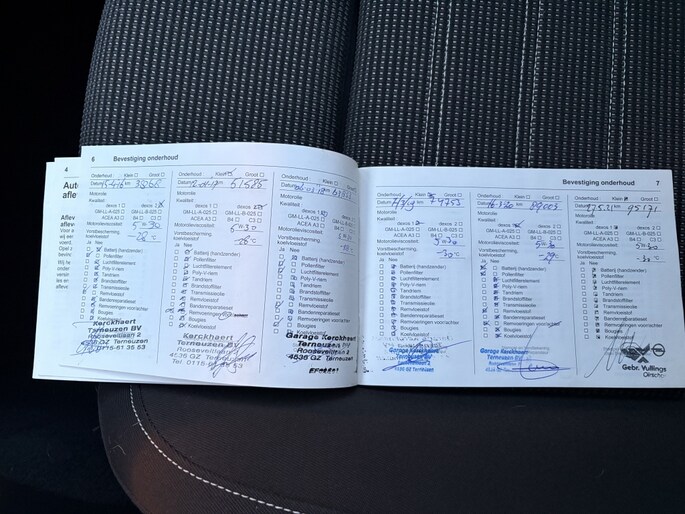 4
Aut
afle
6 Bevestiging onderhoud
Onderhoud Klein Groot
Datum km 38168
Motorolie
Kwaliteit dexos 1 dexos 2
GM-LL-A-025 GM-LL-B-025
ACEA A3 B4 C3
Motorolieviscositeit 5=30
Vorstbescherming
koelvloeistof -28°C
Ja Nee
Batterij (handzender)
Pollenfilter
Luchtfilterelement
Poly-V-riem
Tandriem
Brandstoffilter
Transmissieolie
Remvloeistof
Bandenreparatieset
Remvoeringen
Bougies
Koelvloeistof
Kerckhaert
Terneuzen BV
Rooseveltlaan 2
4536 GZ Terneuzen
Tel. 0115-61 35 53
Onderhoud Klein Groot
Datum km 51585
Motorolie
Kwaliteit dexos 1 dexos 2
GM-LL-A-025 GM-LL-B-025
ACEA A3 B4 C3
Motorolieviscositeit 5=30
Vorstbescherming
koelvloeistof -26°C
Ja Nee
Batterij (handzender)
Pollenfilter
Luchtfilterelement
Poly-V-riem
Tandriem
Brandstoffilter
Transmissieolie
Remvloeistof
Bandenreparatieset
Remvoeringen
Bougies
Koelvloeistof
Kerckhaert
Terneuzen BV
Rooseveltlaan 2
4536 GZ Terneuzen
Tel. 0115-61 35 53
Onderhoud Klein Groot
Datum
Motorolie
Kwaliteit dexos 1 dexos 2
GM-LL-A-025 GM-LL-B-025
ACEA A3 B4 C3
Motorolieviscositeit
Vorstbescherming
koelvloeistof
Ja Nee
Batterij (handzender)
Pollenfilter
Luchtfilterelement
Poly-V-riem
Tandriem
Brandstoffilter
Transmissieolie
Remvloeistof
Bandenreparatieset
Remvoeringen
Bougies
Koelvloeistof
Garage Kerckhaert
Terneuzen BV
Rooseveltlaan 2
4536 GZ Terneuzen
Bevestiging onderhoud 7
Onderhoud Klein Groot
Datum 74753
Motorolie
Kwaliteit dexos 1 dexos 2
GM-LL-A-025 GM-LL-B-025
ACEA A3 B4 C3
Motorolieviscositeit 5=30
Vorstbescherming
koelvloeistof -30°C
Ja Nee
Batterij (handzender)
Pollenfilter
Luchtfilterelement
Poly-V-riem
Tandriem
Brandstoffilter
Transmissieolie
Remvloeistof
Bandenreparatieset
Remvoeringen voor/achter
Bougies
Koelvloeistof
Garage Kerckhaert
Terneuzen BV
Rooseveltlaan 2
4536 GZ Terneuzen
Onderhoud Klein Groot
Datum
Motorolie
Kwaliteit dexos 1 dexos 2
GM-LL-A-025 GM-LL-B-025
ACEA A3 B4 C3
Motorolieviscositeit
Vorstbescherming
koelvloeistof
Ja Nee
Batterij (handzender)
Pollenfilter
Luchtfilterelement
Poly-V-riem
Tandriem
Brandstoffilter
Transmissieolie
Remvloeistof
Bandenreparatieset
Remvoeringen voor/achter
Bougies
Koelvloeistof
Garage Kerckhaert
Terneuzen BV
Rooseveltlaan 2
4536 GZ Terneuzen
Onderhoud Klein Groot
Datum 95171
Motorolie
Kwaliteit dexos 1 dexos 2
GM-LL-A-025 GM-LL-B-025
ACEA A3 B4 C3
Motorolieviscositeit 5-30
Vorstbescherming
koelvloeistof
Ja Nee
Batterij (handzender)
Pollenfilter
Luchtfilterelement
Poly-V-riem
Tandriem
Brandstoffilter
Transmissieolie
Remvloeistof
Bandenreparatieset
Remvoeringen voor/achter
Bougies
Koelvloeistof
Gebr. Vullings
Oirschot